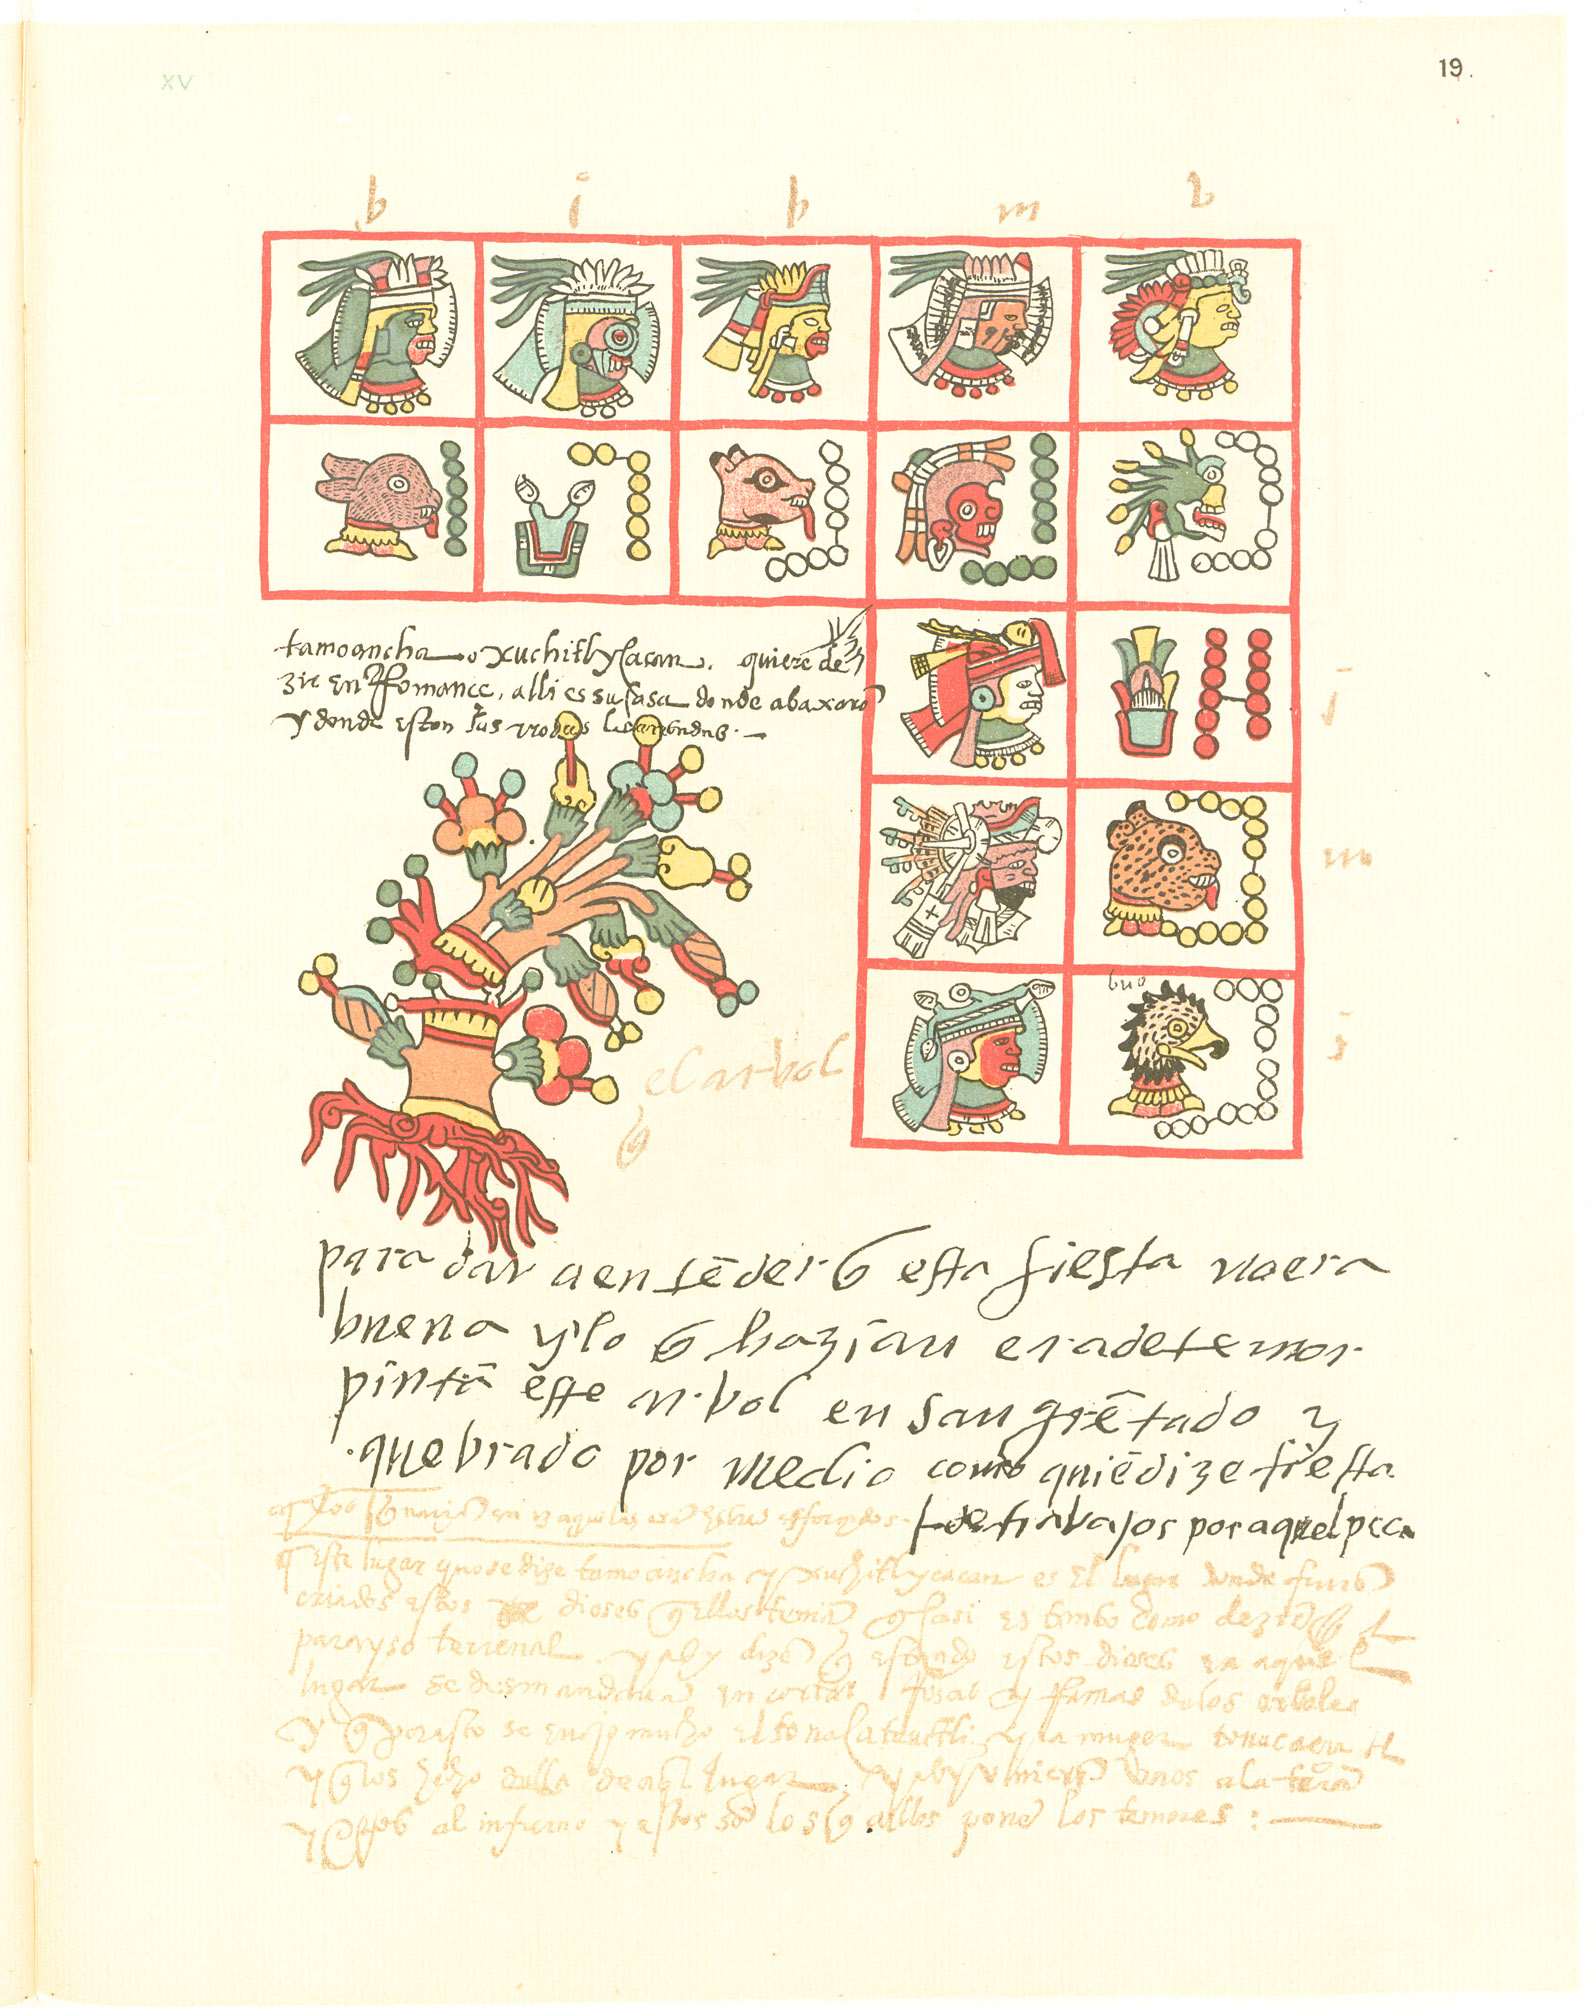 XV
19.
b i b m b
tamoancha o xuchitlycacan. quiere de
zir en Romance, alli es su casa donde abaxarō
y donde estan sus
j
m
el arbol
q̄
buo
para dar a entēder q̄ esta fiesta no era
buena y lo q̄ hazian era de temor
pintā este arbol ensangrētado y
quebrado por medio como quiē dize fiesta
de trabajos por aquel peca
este lugar q̄ se dize tamoancha y xuchitlycacan es el lugar donde fuerō
criados estos dioses q̄ ellos tenian q̄ casi es tanto como dezir el
parayso terrenal y asy dizē q̄ estando estos dioses en aquel
lugar se desmandavan en cortar rosas y rramas de los arboles
y q̄ por esto se enojo mucho el tonacateuctli y la muger tonacaciu
y q̄ los hecho de aql̄ lugar y asy vinierō unos a la tierra
y otros al infierno y estos sō los q̄ a ellos ponē los temores :